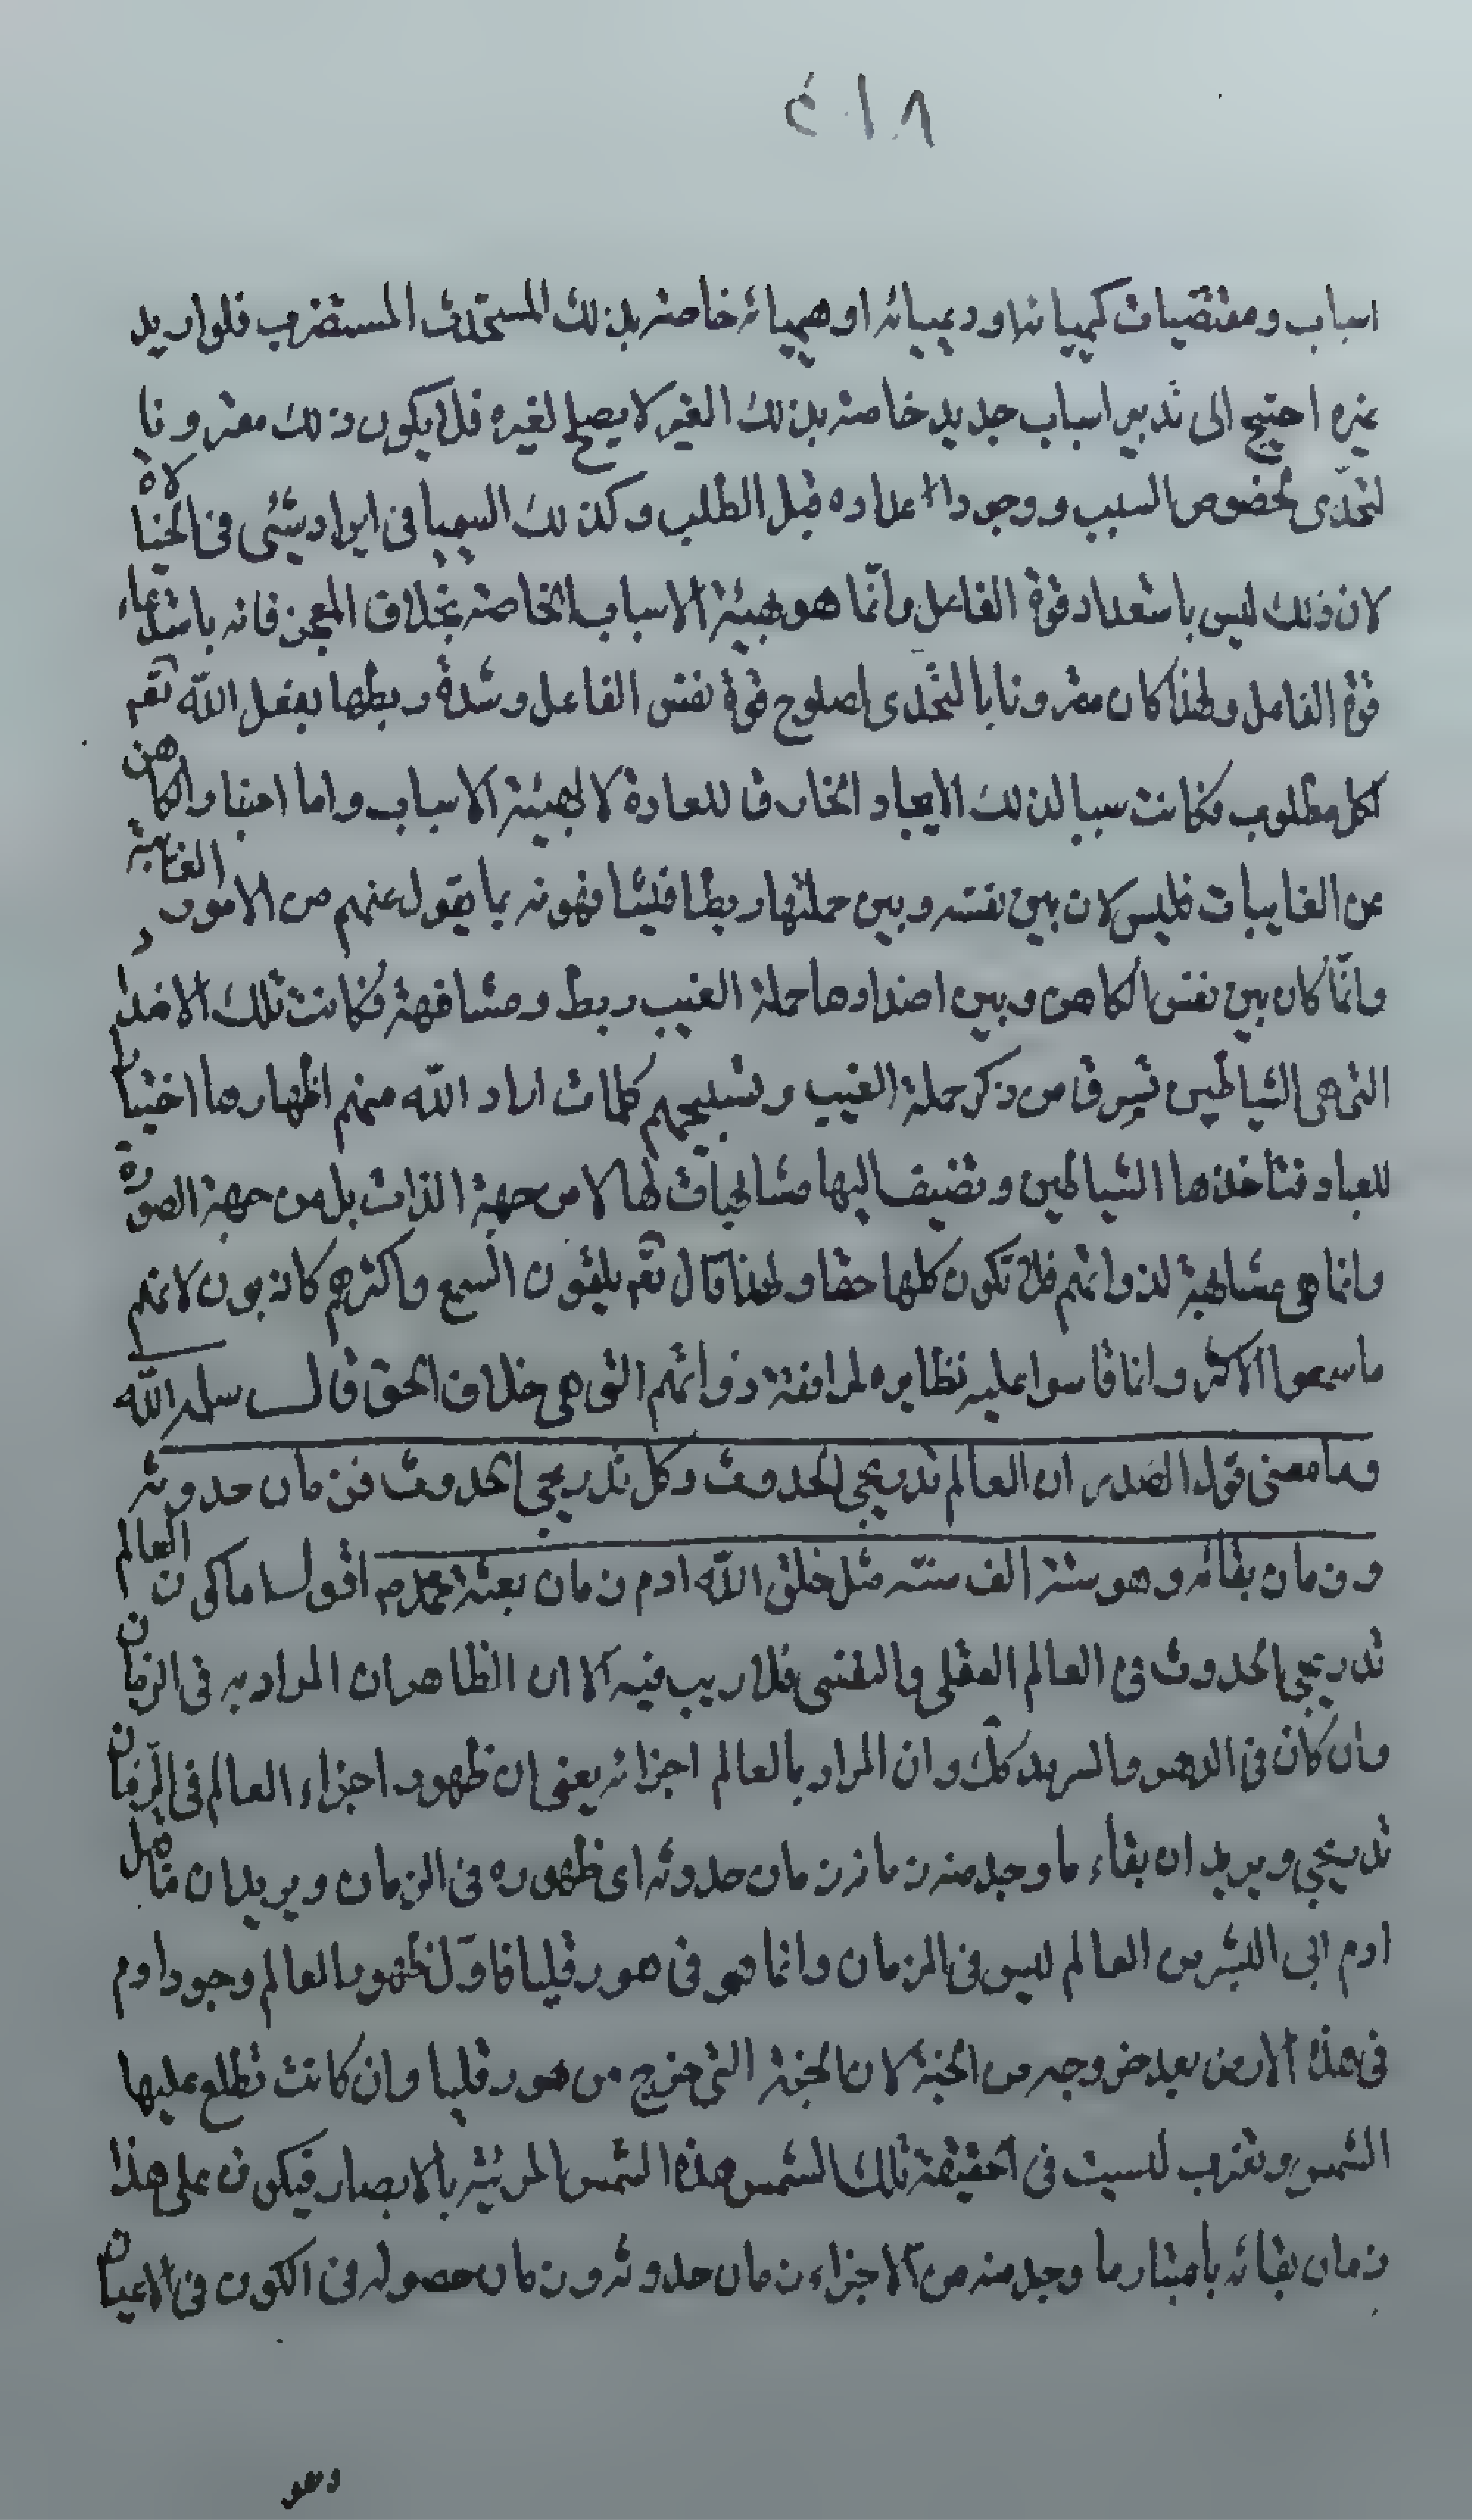 ٤١٨
اسباب ومقتضيات كيميائه او ريميائه او هيميائه خاصة بذلك المستحدث المستغرب فلو اريد
غيره احتيج الى تدبير اسباب جديد خاصة بذلك الغير لا يصلح لغيره فلا يكون ذلك مقرونا
لتحدى لخصوص السبب ووجود اعداده قبل الطلب وكذلك السيميا فى ايراد شئى فى الخيالاة
لان ذلك ليس باستعداد قوة الفاعل وانّما هو بهيئة الاسباب الخاصة بخلاف المعجز فانه باستدعاء
قوة الفاعل ولهذا كان مقرونا بالتحدى لصلوح قوة نفس الفاعل وشدة ربطها بفعل الله تعم
لكل مطلوب فكانت سببا لذلك الايجاد الخارق للعادة لا لهيئة الاسباب واما اخبار الكاهن
عن الغايبات فليس لان بين نفسه وبين حملتها ربطا فيشافهونه بما يقول عنهم من الامور الغائبة
وانّما كان بين نفس الكاهن وبين اضدادها حملة الغيب ربط ومشافهة فكانت تلك الاضداد
التى هى الشياطين تسرق من ذكر حملة الغيب وتسبيحهم كلمات اراد الله منهم اظهارها اختبارا
للعباد فتاخذها الشياطين وتضيف اليها مشابهات لها لا من جهة الذات بل من جهة الصورة
وانما هى مشابهة لذواتهم فلا تكون كلها حقا ولهذا قال تعم يلقون السمع واكثرهم كاذبون لانهم
ما سمعوا الاكثر وانما قاسوا عليه نظايره لموافقة ذواتهم التى هى خلاف الحق قال سلمه الله
وما معنى قول الصدر ان العالم تدريجى الحدوث وكل تدريجى الحدوث فزمان حدوثه
وزمان بقائه وهو ستة الف سنة مثل خلق الله ادم زمان بعثة محمد ص اقول اما كون العالم
تدريجى الحدوث فى العالم العقلى والنفسى فلا ريب فيه الا ان الظاهر ان المراد به فى الزمان
وان كان فى الدهر والسرمد كك وان المراد بالعالم اجزائه يعنى ان ظهور اجزاء العالم فى الزمان
تدريجى ويريد ان بقاء ما وجد منه زمانه زمان حدوثه اى ظهوره فى الزمان ويريد ان ما قبل
ادم ابى البشر من العالم ليس فى الزمان وانما هو فى هورقليا فاوّل ظهور العالم وجود ادم
فى هذه الارض بعد خروجه من الجنة لان الجنة التى خرج من هورقليا وان كانت تطلع عليها
الشمس وتغرب ليست فى الحقيقة تلك الشمس هذه الشمس المرئية بالابصار فيكون على هذا
زمان بقائه باعتبار ما وجد منه من الاجزاء زمان حدوثه وزمان حصوله فى الكون فى الاعيان
وهو